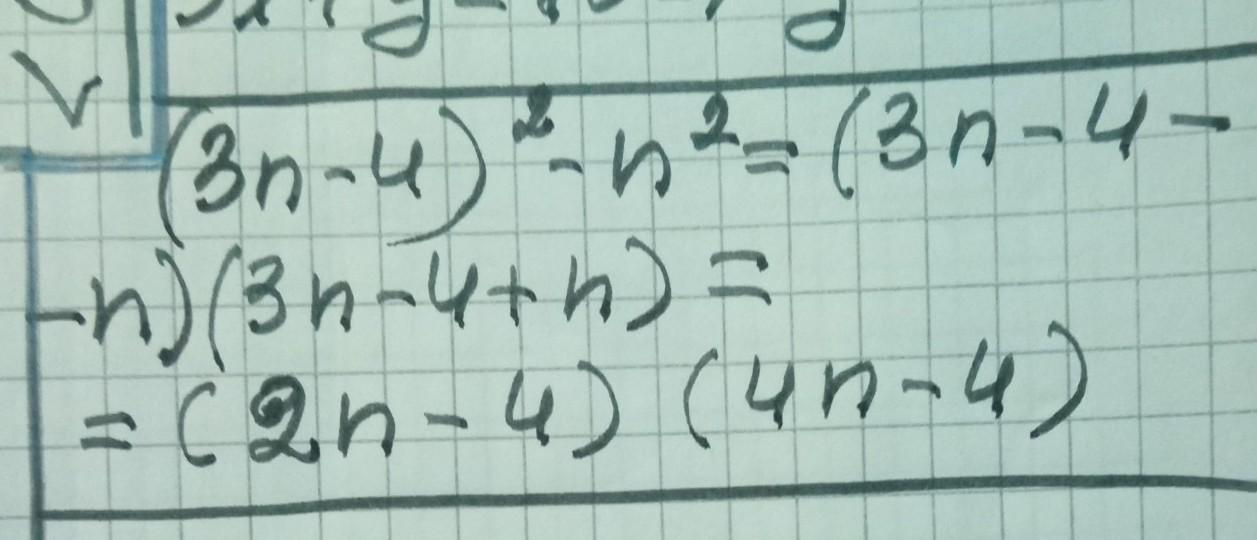 (3n-4)²-n²=(3n-4-
-n)(3n-4+n)=
=(2n-4)(4n-4)